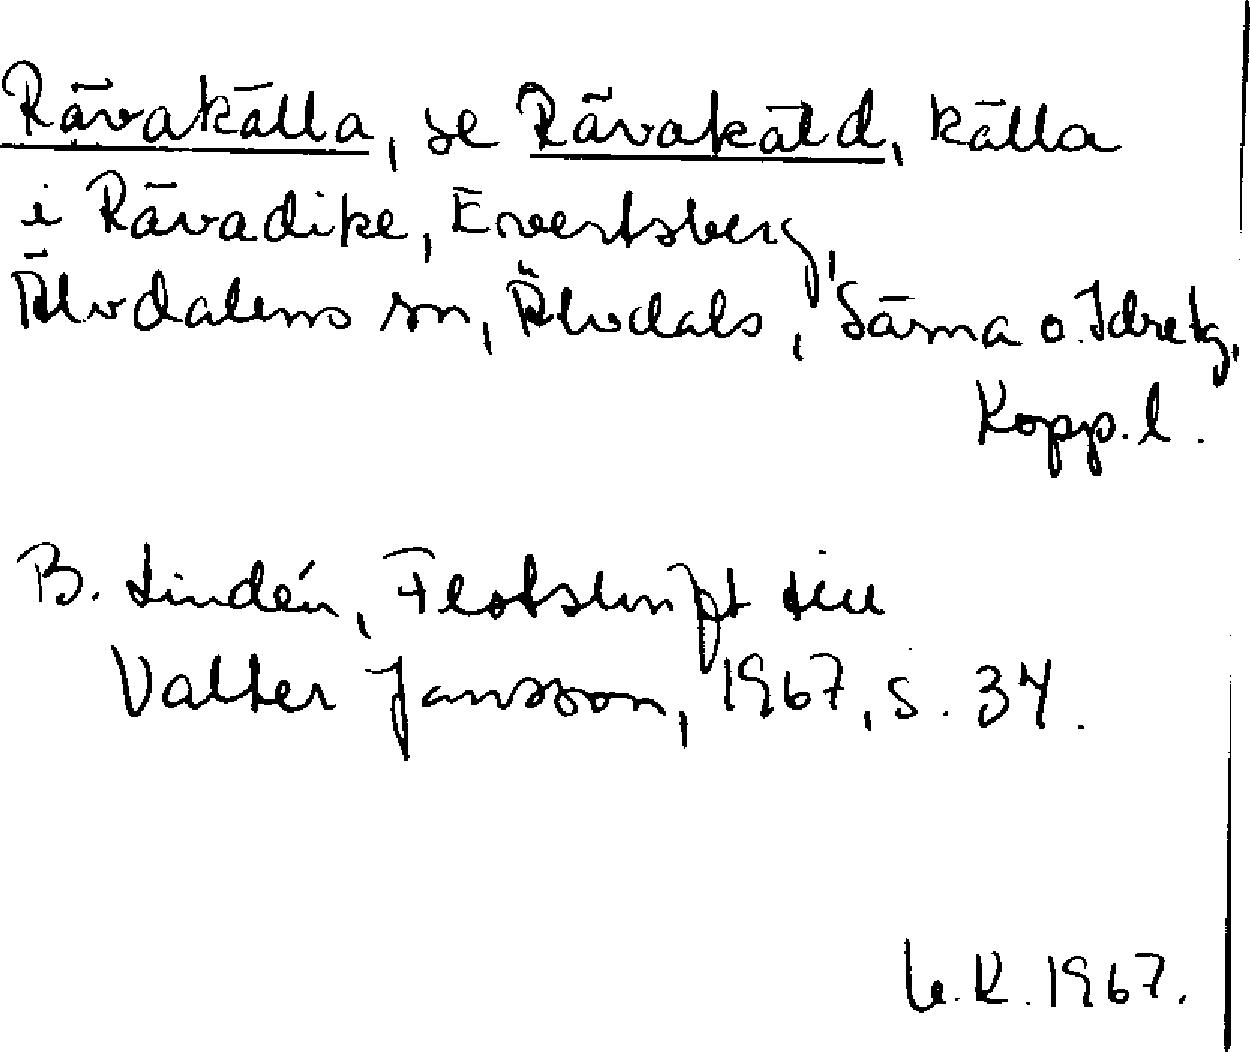 Rävakälla, se Rävakäld, källa
i Rävadike, Evertsberg,
Älvdalens sn, Älvdals, Särna o. Idre tg,
Kopp. l.
B. Lindén, Festskrift till
Valter Jansson, 1967, s. 34.
K. 1967.